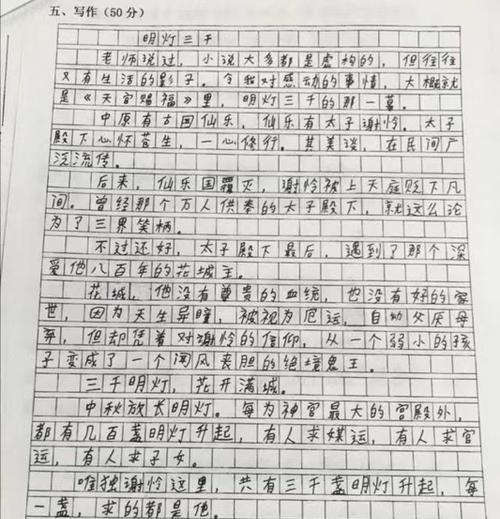 五、写作(50分)
明灯三千
老师说过，小说大多都是虚构的，但往往
又有生活的影子。令我对感动的事情，大概就
是《天官赐福》里，明灯三千的那一幕。
中原有古国仙乐，仙乐有太子谢怜。太子
殿下心怀苍生，一心修行。其美谈，在民间广
泛流传。
后来，仙乐国覆灭，谢怜被上天庭贬下凡
间。曾经那个万人供奉的太子殿下，就这么沦
为了三界笑柄。
不过还好，太子殿下最后，遇到了那个深
爱他八百年的花城主。
花城，他没有尊贵的血统，也没有好的家
世，因为天生异瞳，被视为厄运，自幼父厌母
弃，但却凭着对谢怜的信仰，从一个弱小的孩
子变成了一个闻风丧胆的绝境鬼王。
三千明灯，花开满城。
中秋放长明灯。每为神官最大的宫殿外，
都有几百盏明灯升起，有人求媒运，有人求官
运，有人求子女。
唯独谢怜这里，共有三千盏明灯升起，每
一盏，求的都是他。